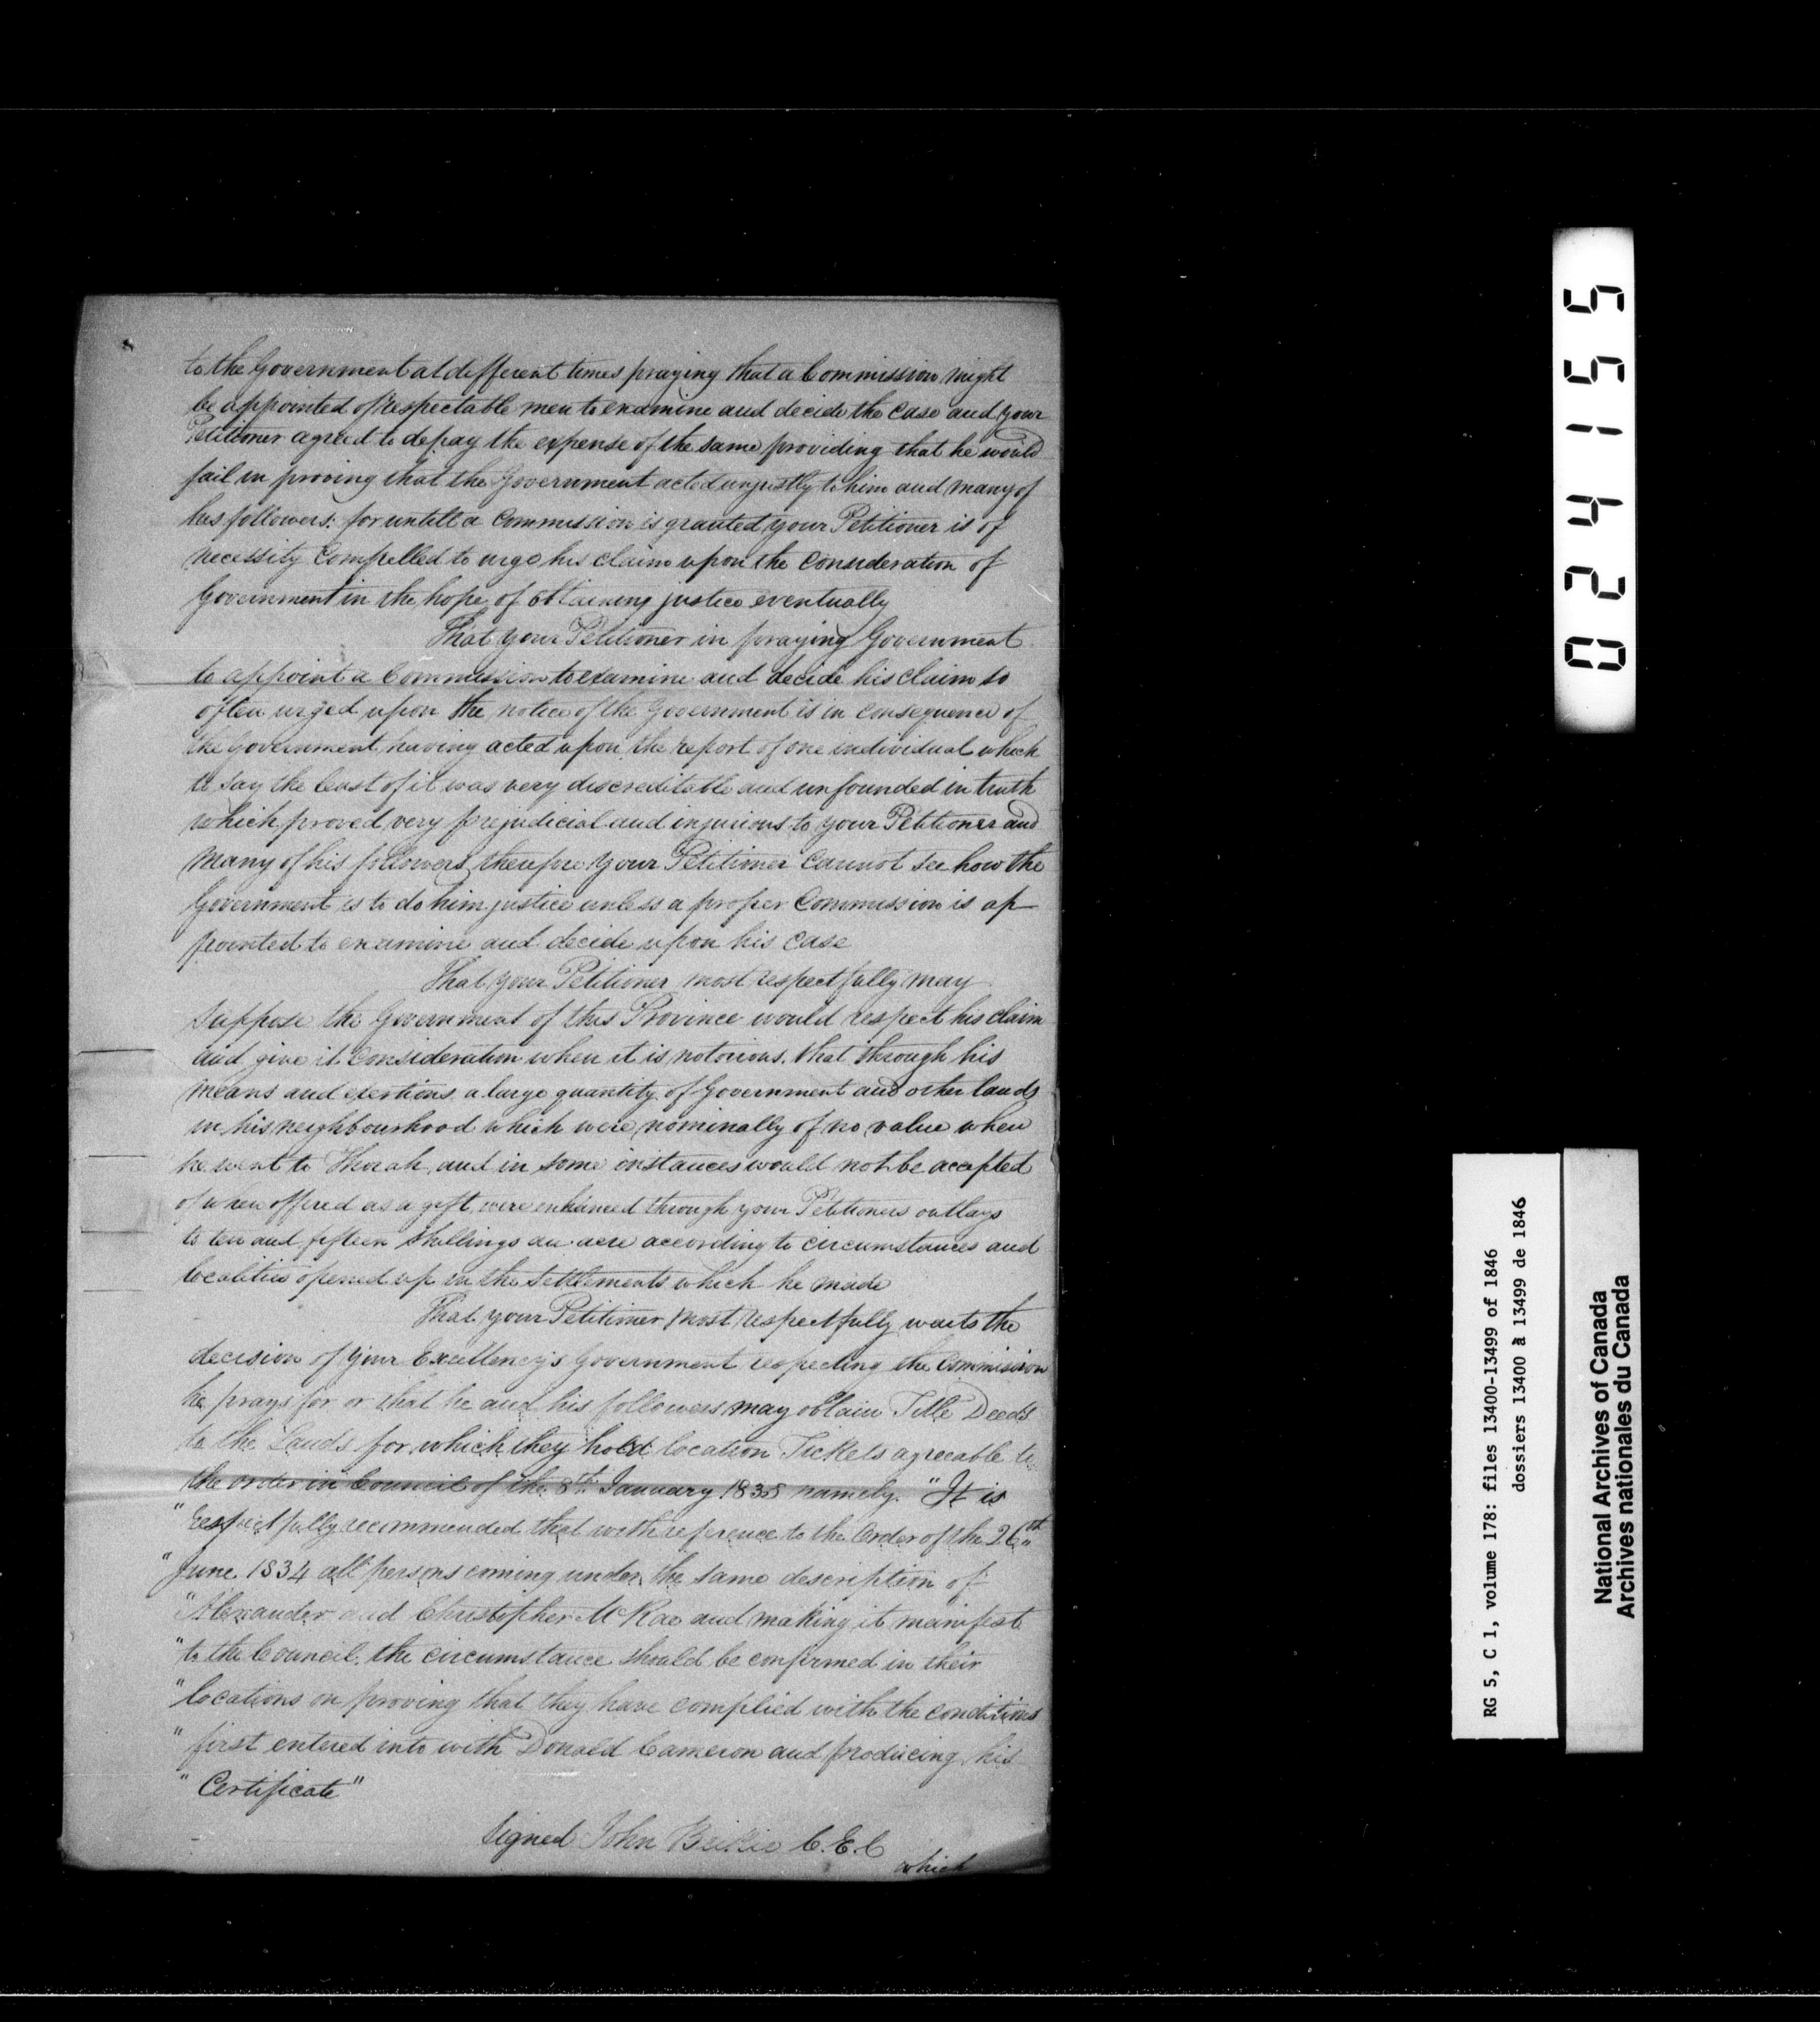 to the Government at different times praying that a Commission might
be appointed of respectable men to examine and decide the case and your
Petitioner agreed to defray the expense of the same providing that he would
fail in proving that the Government acted unjustly to him and many of
his followers: for untill a Commission is granted your Petitioner is of
necessity compelled to urge his claim upon the consideration of
Government in the hope of obtaining justice eventually
That your Petitioner in praying Government
to appoint a Commission to examine and decide his claim so
often urged upon the notice of the Government is in consequence of
the Government having acted upon the report of one individual which
to say the least of it was very discreditable and unfounded in truth
which proved very prejudicial and injurious to your Petitioner and
many of his followers therefore your Petitioner cannot see how the
Government is to do him justice unless a proper Commission is ap
pointed to examine and decide upon his case
That your Petitioner most respectfully may
suppose the Government of this Province would respect his claim
and give it consideration when it is notorious that through his
means and exertions a large quantity of Government and other lands
in his neighbourhood which were nominally of no value when
he went to Thorah and in some instances would not be accepted
of when offered as a gift were enhanced through your Petitioners outlays
to ten and fifteen shillings an acre according to circumstances and
localities opened up in the settlements which he made
That your Petitioner most respectfully waits the
decision of your Excellency's Government respecting the Commission
he prays for or that he and his followers may obtain Title Deeds
to the Lands for which they hold location Tickets agreeable to
the order in Council of the 8th January 1835 namely. "It is
"respectfully recommended that with reference to the Order of the 26th
"June 1834 all persons coming under the same description of
"Alexander and Christopher McRae and making it manifest
"to the Council the circumstance should be confirmed in their
"locations on proving that they have complied with the conditions
"first entered into with Donald Cameron and producing his
"Certificate"
Signed John Beikie C.E.C
which
024155
RG 5, C 1, volume 178: files 13400-13499 of 1846
dossiers 13400 à 13499 de 1846
National Archives of Canada
Archives nationales du Canada